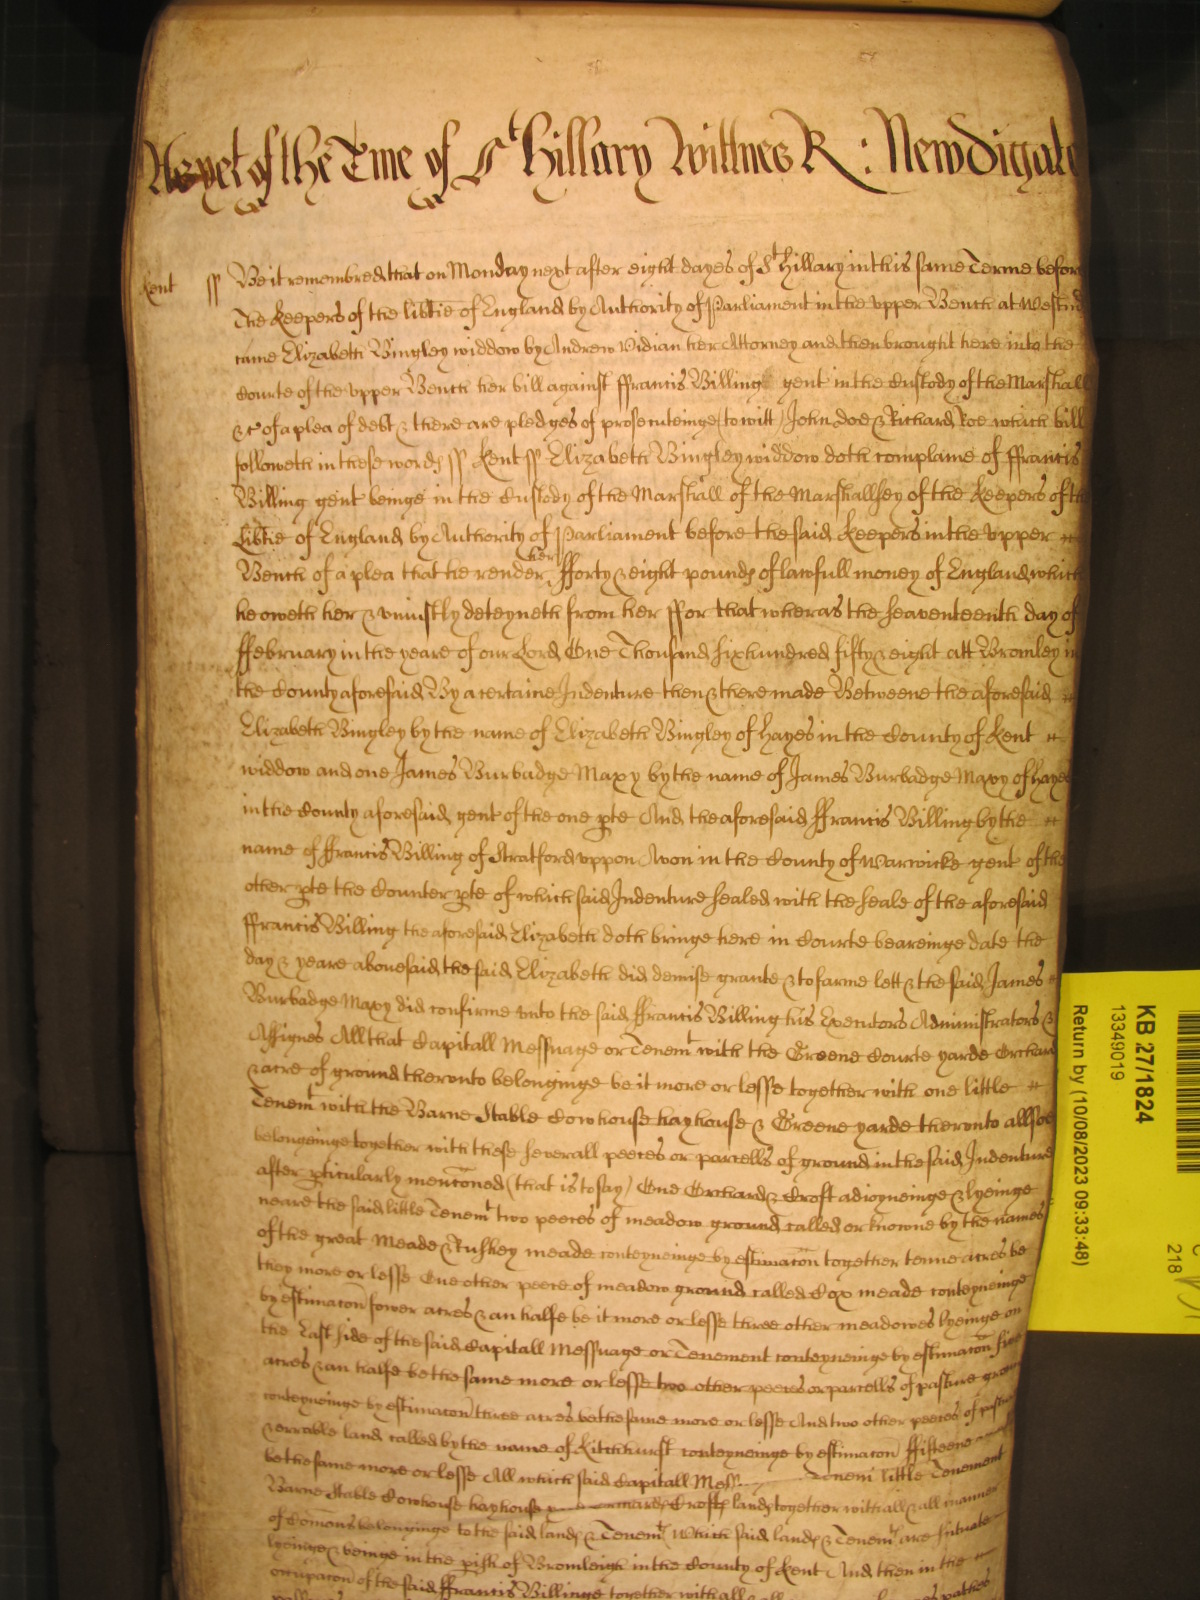 As yet of the Tme of St Hillary Wittnes R: Newdigate
Kent ss Be it remembred that on Monday next after eight dayes of St Hillary in this same Terme before
The Keepers of the libtie of England by Authority of Parliament in the vpper Bench at Westm
came Elizabeth Bingley widdow by Andrew Vidian her Attorney and then brought here into the
Courte of the vpper Bench her bill against ffrancis Billing gent in the Custody of the Marshall
&c of a plea of debt & there are pledges of prosecuteinge (to witt) John Doe & Richard Roe which bill
followeth in these words ss Kent ss Elizabeth Bingley widdow doth complaine of ffrancis
Billing gent beinge in the Custody of the Marshall of the Marshallsey of the Keepers of the
Libtie of England by Authority of Parliament before the said Keepers in the vpper
Bench of a plea that he render her fforty & eight pounds of lawfull money of England which
he oweth her & vniustly deteyneth from her ffor that wheras the seaventeenth day of
ffebruary in the yeare of our Lord One Thousand six hundred fifty & eight att Bromley in
the County aforesaid By a certaine Indenture then & there made Betweene the aforesaid
Elizabeth Bingley by the name of Elizabeth Bingley of Hayes in the County of Kent
widdow and one James Burbadge Maxy by the name of James Burbadge Maxy of Hayes
in the County aforesaid gent of the one pte And the aforesaid ffrancis Billing by the
name of ffrancis Billing of Stratford vppon Avon in the County of Warwicke gent of the
other pte the Counter pte of which said Indenture sealed with the seale of the aforesaid
ffrancis Billing the aforesaid Elizabeth doth bringe here in Courte beareinge date the
day & yeare abovesaid the said Elizabeth did demise grante & to farme lett & the said James
Burbadge Maxy did confirme vnto the said ffrancis Billing his Executors Administrators &
Assignes All that Capitall Messuage or Tenemt with the Greene Courte yarde Orchard
& acre of ground theronto belonginge be it more or lesse together with one little
Tenemt with the Barne Stable Cowhouse hayhouse & Greene yarde theronto allsoe
belongeinge together with these severall peeces or parcells of ground in the said Indenture
after pticularly menconed (that is to say) One Orchard & Croft adioyneinge & lyeinge
neare the said little Tenemt two peeces of meadow ground called or knowne by the names
of the great Meade & Rushey meade conteyneinge by estimacon together tenne acres be
they more or lesse One other peece of meadow ground called Cox meade conteyneinge
by estimacon fower acres & an halfe be it more or lesse three other meadowes lyeinge on
the East side of the said Capitall Messuage or Tenement conteyneinge by estimacon five
acres & an halfe be the same more or lesse two other peeces or parcells of pasture ground
conteyneinge by estimacon three acres be the same more or lesse And two other peeces of pasture
& errable land called by the name of Kitchhurst conteyneinge by estimacon ffifteene acres
be the same more or lesse All which said Capitall Mess Tenemt little Tenement
Barne Stable Cowhouse hayhouse orchards Crofts lands together with all & all manner
of Comons belonginge to the said lands & Tenemt Which said lands & Tenemt are situate
lyeinge & beinge in the pish of Bromleigh in the County of Kent And then in the
occupacon of the said ffrancis Billinge together with all
KB 27/1824
13349019
Return by (10/08/2023 09:33:48)
218